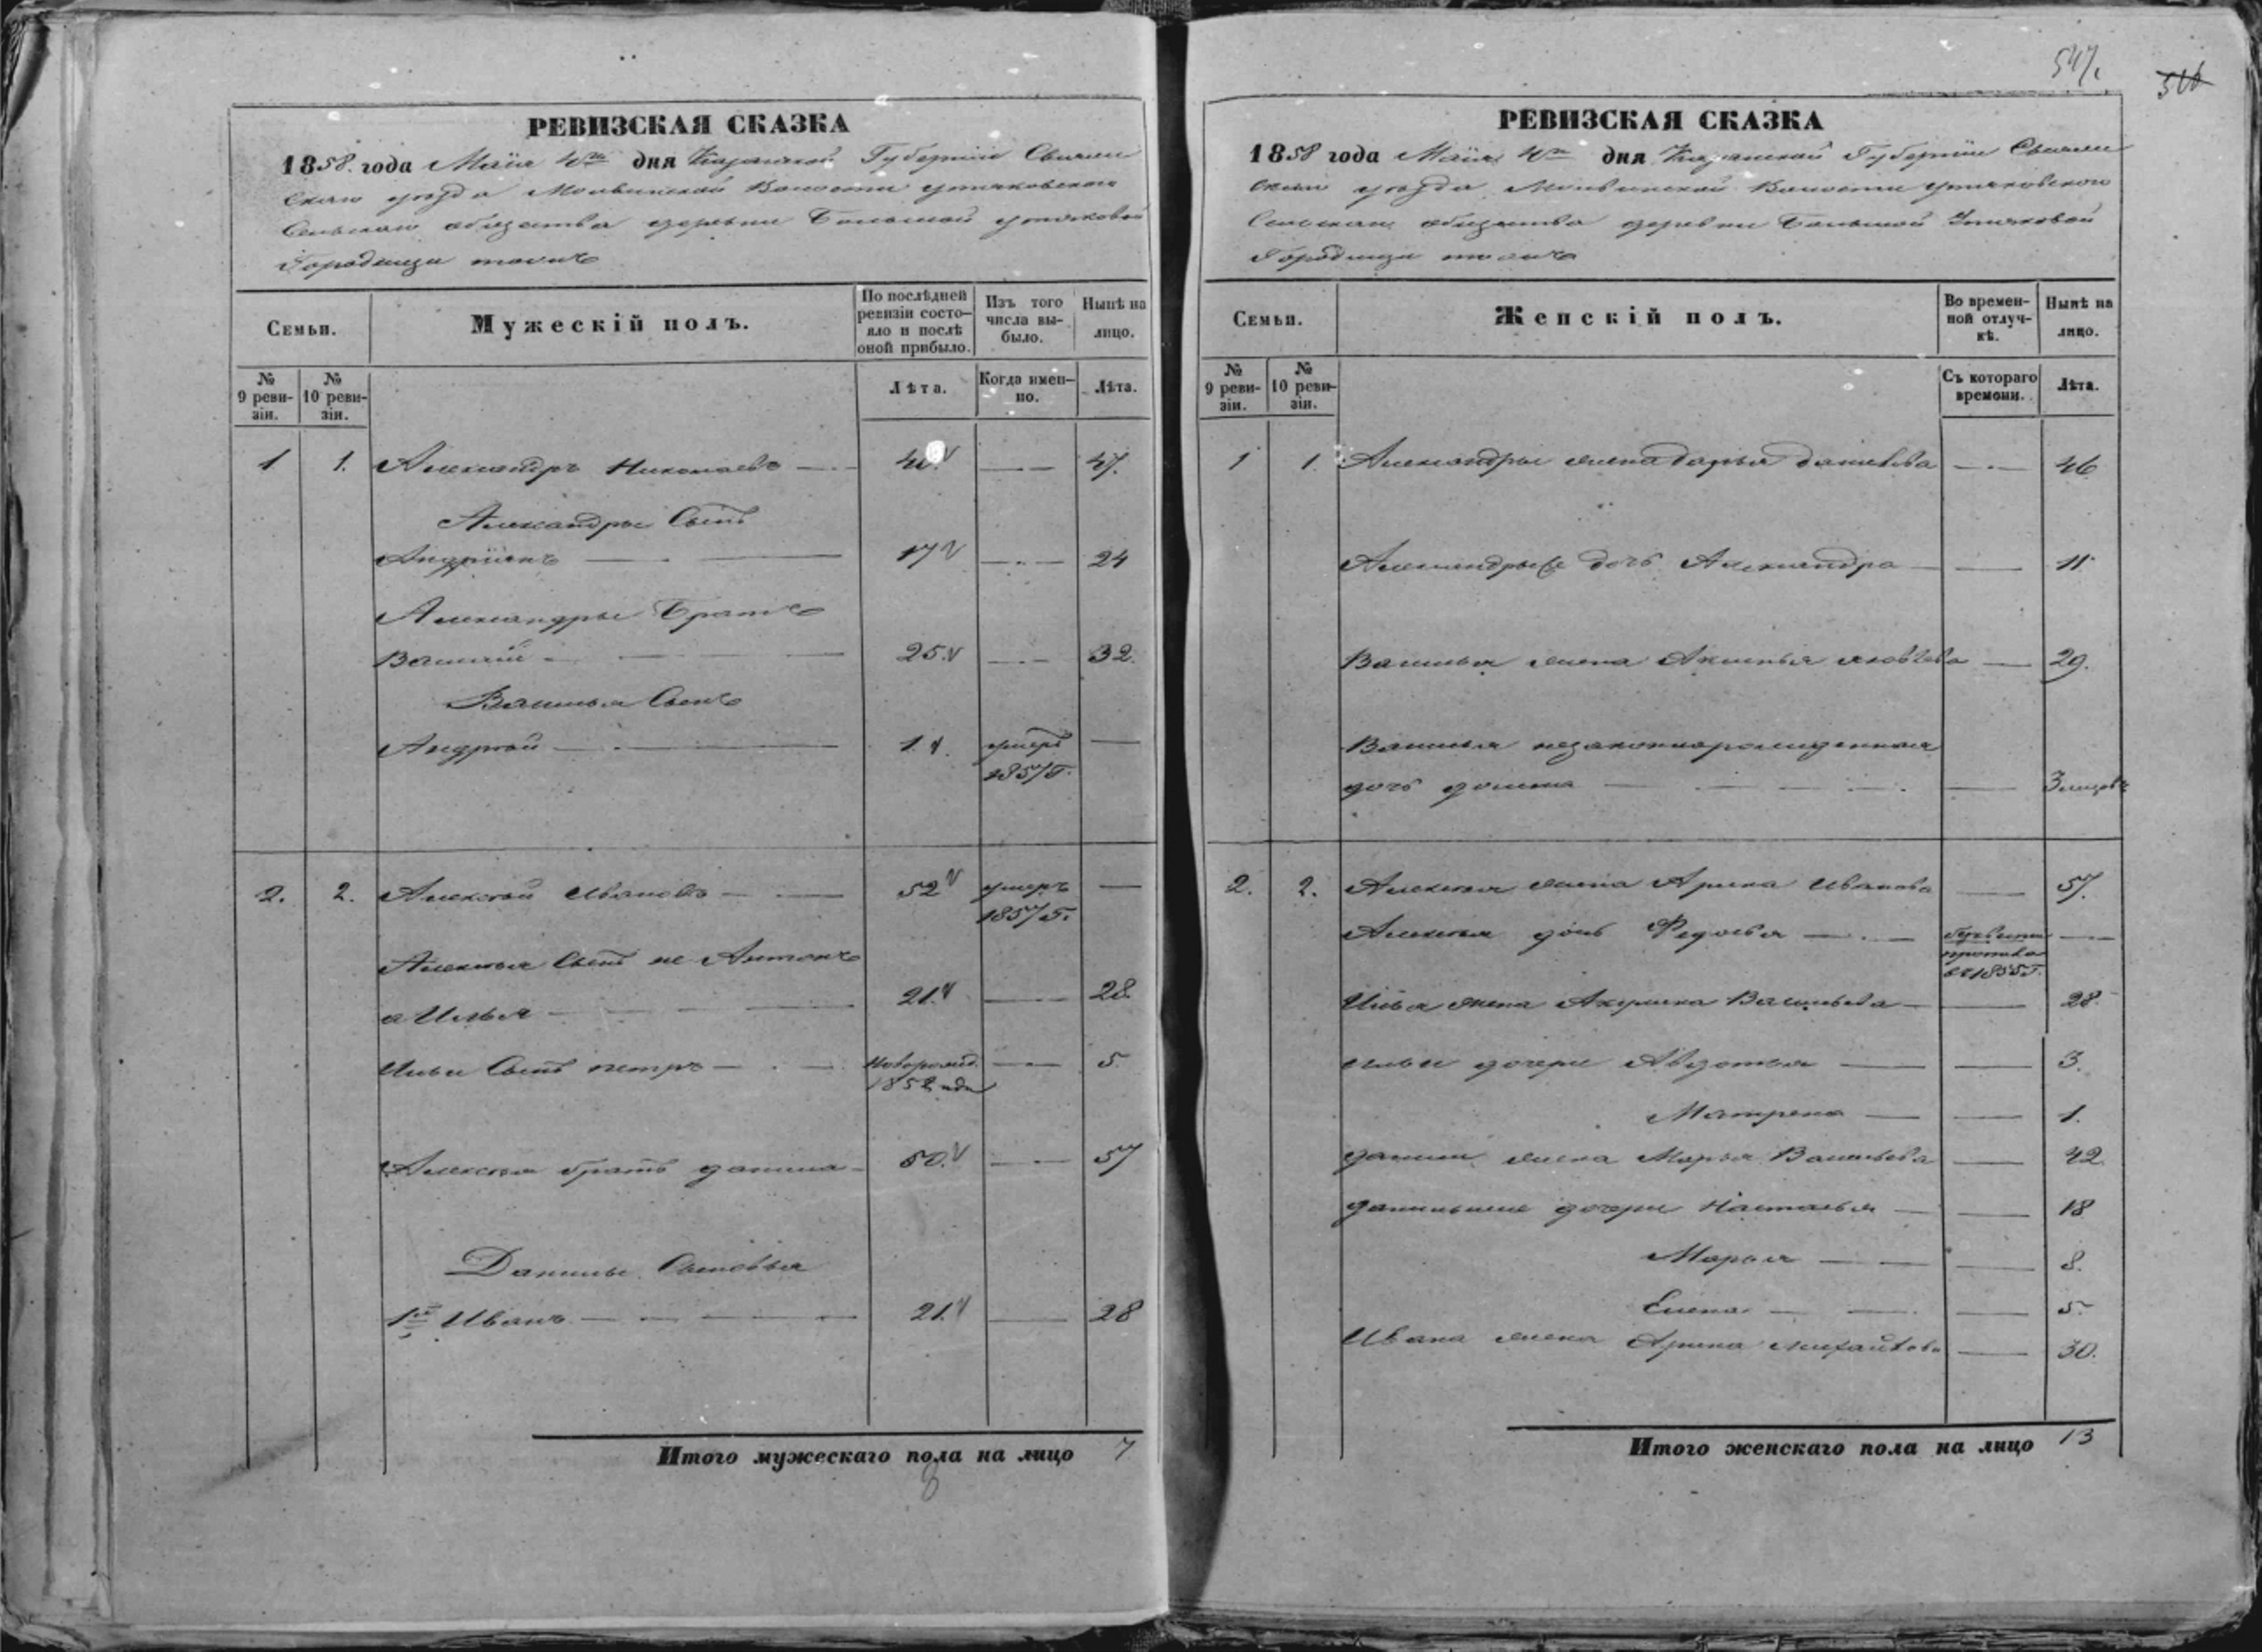 РЕВИЗСКАЯ СКАЗКА
1858 года Маія 4го дня Казанской Губерніи Свіяж
скаго уезда Волости
Сельскаго общества деревни Большой
тожъ
Семьи.
Мужескій полъ.
По послѣдней ревизіи состояло и послѣ оной прибыло.
Изъ того числа выбыло.
Нынѣ на лицо.
№ 9 ревизіи.
№ 10 ревизіи.
Лѣта.
Когда именно.
Лѣта.
1 1. Александръ Николаевъ 47.
Александры Сынъ
Андріянъ 17 24
Александры Братъ
Василій 25. 32.
Василья Сынъ
Андрей 1. умеръ
1857 г.
2. 2. Алексей Ивановъ 52 умеръ
1857 г.
Алексея Сынъ не Антонъ
а Илья 21. 28.
Ильи Сынъ петръ новорожд. 5.
Алексея братъ данила 50. 57
Данилы Сыновья
1й Иванъ 21. 28
Итого мужескаго пола на лицо 7
8
547.
РЕВИЗСКАЯ СКАЗКА
1858 года Маія 4го дня Казанской Губерніи Свіяж
скаго уезда Волости
Сельскаго общества деревни Большой
тожъ
Семьи.
Женскій полъ.
Во временной отлучкѣ.
Нынѣ на лицо.
№ 9 ревизіи.
№ 10 ревизіи.
Съ котораго времени.
Лѣта.
1 1. Александры жена дарья 46
Александры дочь Александра 11
Василья жена Яковлева 29.
Василья незаконнорожденная
дочь 3 месецъ
2. 2. Алексея жена Арина Иванова 57.
Алексея дочь Федосья
1855 г.
Ильи жена Акулина Васильева 28.
ильи дочери Авдотья 3.
Матрена 1.
данилы жена Марья Васильева 42
данилины дочери Настасья 18
Марья 8.
Елена 5.
Ивана жена Арина михайлова 30.
Итого женскаго пола на лицо 13